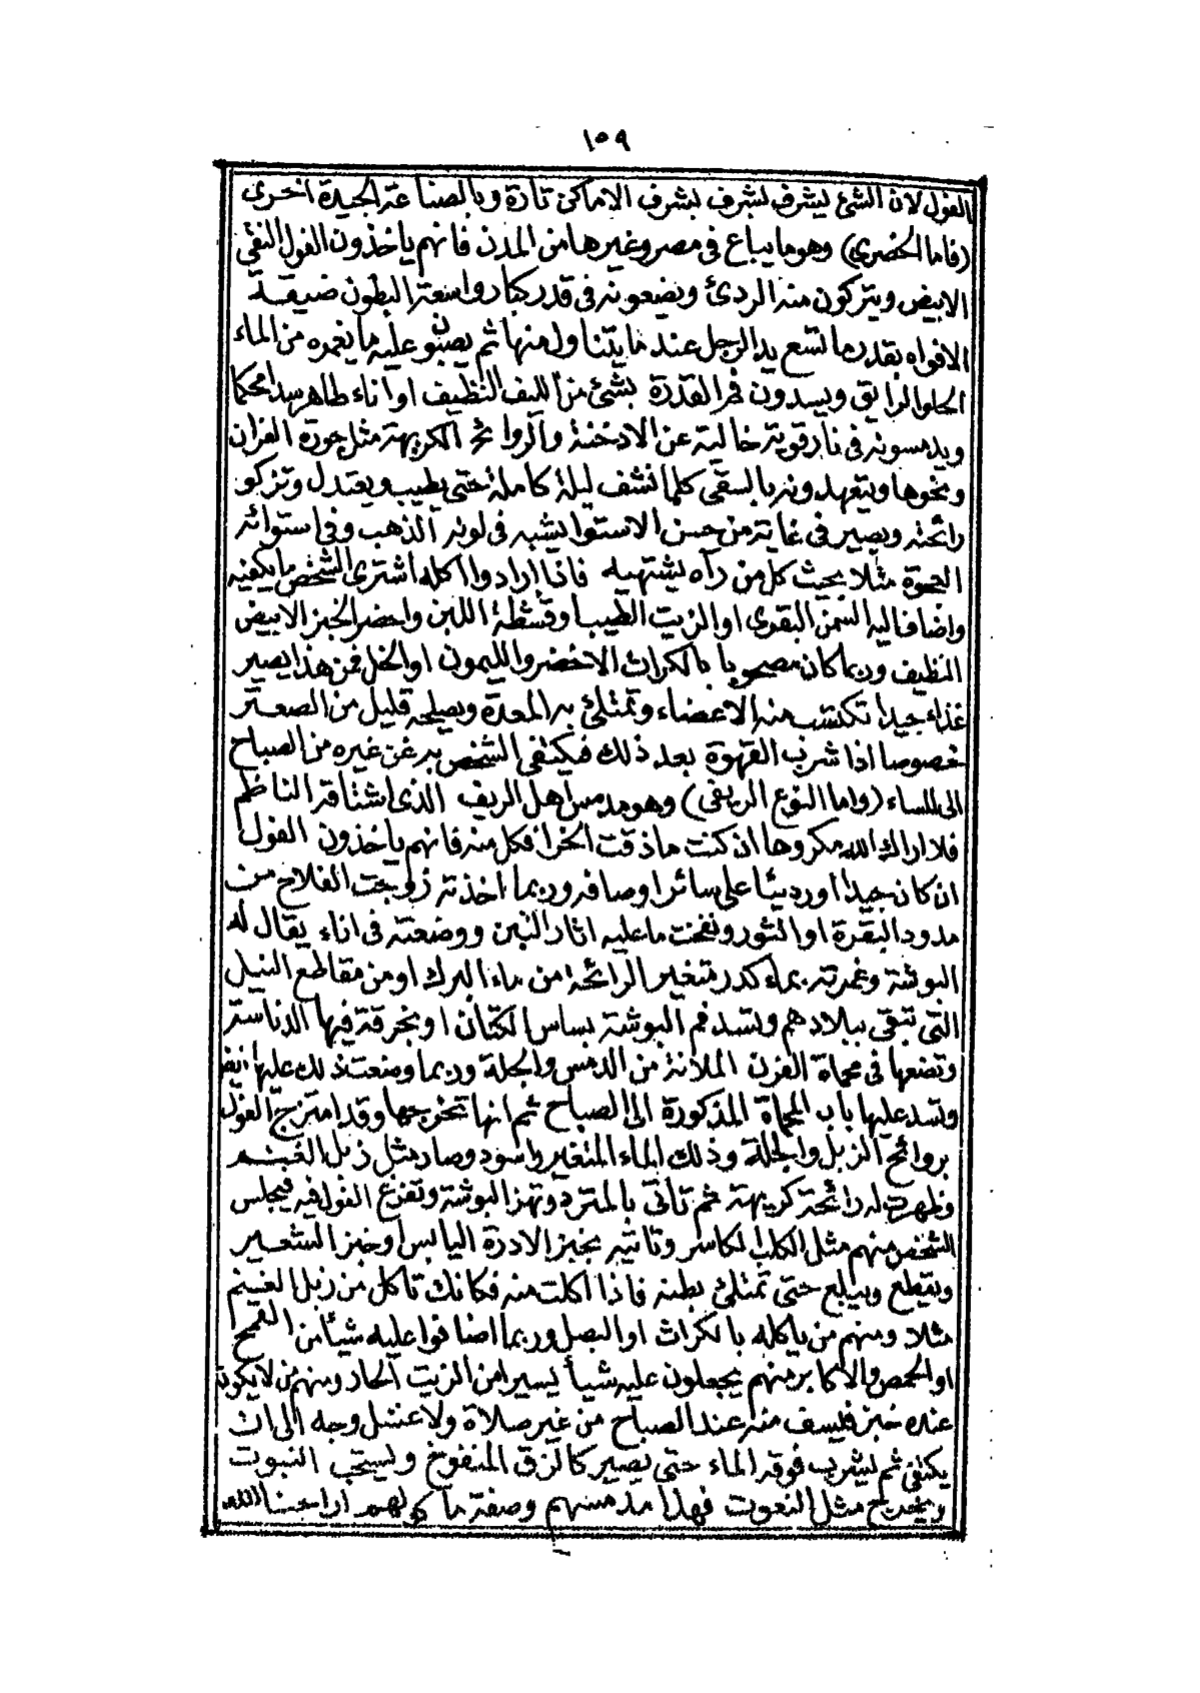 ١٥٩
الفول لان الشئ ليشرف بشرف الاماكن تارة وبالصناعة الجيدة اخرى
(فاما الحضري) وهو ما يباع فى مصر وغيرها من المدن فانهم ياخذون الفول النقى
الابيض ويتركون منه الردئ ويضعونه فى قدر كبار واسعة البطون ضيقة
الافواه بقدر ما تسع يد الرجل عند ما يتناول منها ثم يصبون عليه ما يغمره من الماء
الحلو الرايق ويسدون فم القدرة بشئ من الليف النظيف او اناء طاهر سدا محكما
ويدمسونه فى نار قوية خالية عن الادخنة والروائح الكريهة مثل جورة الفران
ونحوها ويتعهدونه بالسقى كلما نشف ليلة كاملة حتى يطيب ويعتدل وتزكو
رائحته ويصير فى غاية من حسن الاستوا يشبه فى لونه الذهب وفى استوائه
العجوة مثلا بحيث كل من رآه يشتهيه فاذا ارادوا اكله اشترى الشخص ما يكفيه
واضاف اليه السمن البقرى او الزيت الطيب او قشطة اللبن واحضر الخبز الابيض
النظيف وربما كان مصحوبا بالكراث الاخضر والليمون او الخل فمن هذا يصير
غذاء جيدا تكتسب منه الاعضاء وتمتلئ به المعدة ويصلحه قليل من الصعتر
خصوصا اذا شرب القهوة بعد ذلك فيكتفى الشخص به عن غيره من الصباح
الى المساء (واما النوع الريفى) وهو مدمس اهل الريف الذى اشتاقه الناظم
فلا اراك الله مكروها ان كنت ما ذقت الخرا فكل منه فانهم ياخذون الفول
ان كان جيدا او رديئا على سائر اوصافه وربما اخذته زوجت الفلاح من
مدود البقرة او الثور ونفخت ما عليه اثار التبن ووضعته فى اناء يقال له
البوشة وغمرته بماء كدر متغير الرائحة من ماء البرك او من مقاطع النيل
التى تبقى ببلادهم وتسد فم البوشة بساس الكتان او بخرقة فيها الدناسة
وتضعها فى محماة الفرن الملانة من الدمس والجلة وربما وضعت ذلك عليها ايضا
وتسد عليها باب المحماة المذكورة الى الصباح ثم انها تخرجها وقد امتزج الفول
بروائح الزبل والجلة وذلك الماء المتغير واسود وصار مثل زبل الغنم
وظهرت له رائحة كريهة ثم تاتى بالمترد وتهز البوشة وتفرغ الفول فيه فيجلس
الشخص منهم مثل الكلب الكاسر وتاتيه بخبز الادرة اليابس او خبز الشعير
ويقطع ويبلع حتى تمتلئ بطنه فاذا اكلت منه فكانك تاكل من زبل الغنم
مثلا ومنهم من ياكله بالكراث او البصل وربما اضافوا عليه شيأ من القمح
او الحمص والاكابر منهم يجعلون عليه شيأ يسيرا من الزيت الحار ومنهم من لا يكون
عنده خبز فليسف منه عند الصباح من غير صلاة ولا غسل وجه الى ان
يكتفى ثم يشرب فوقه الماء حتى يصير كالزق المنفوخ ويسحب النبوت
ويخرج مثل النعوت فهذا مدمسهم وصفة ماكولهم اراحنا الله